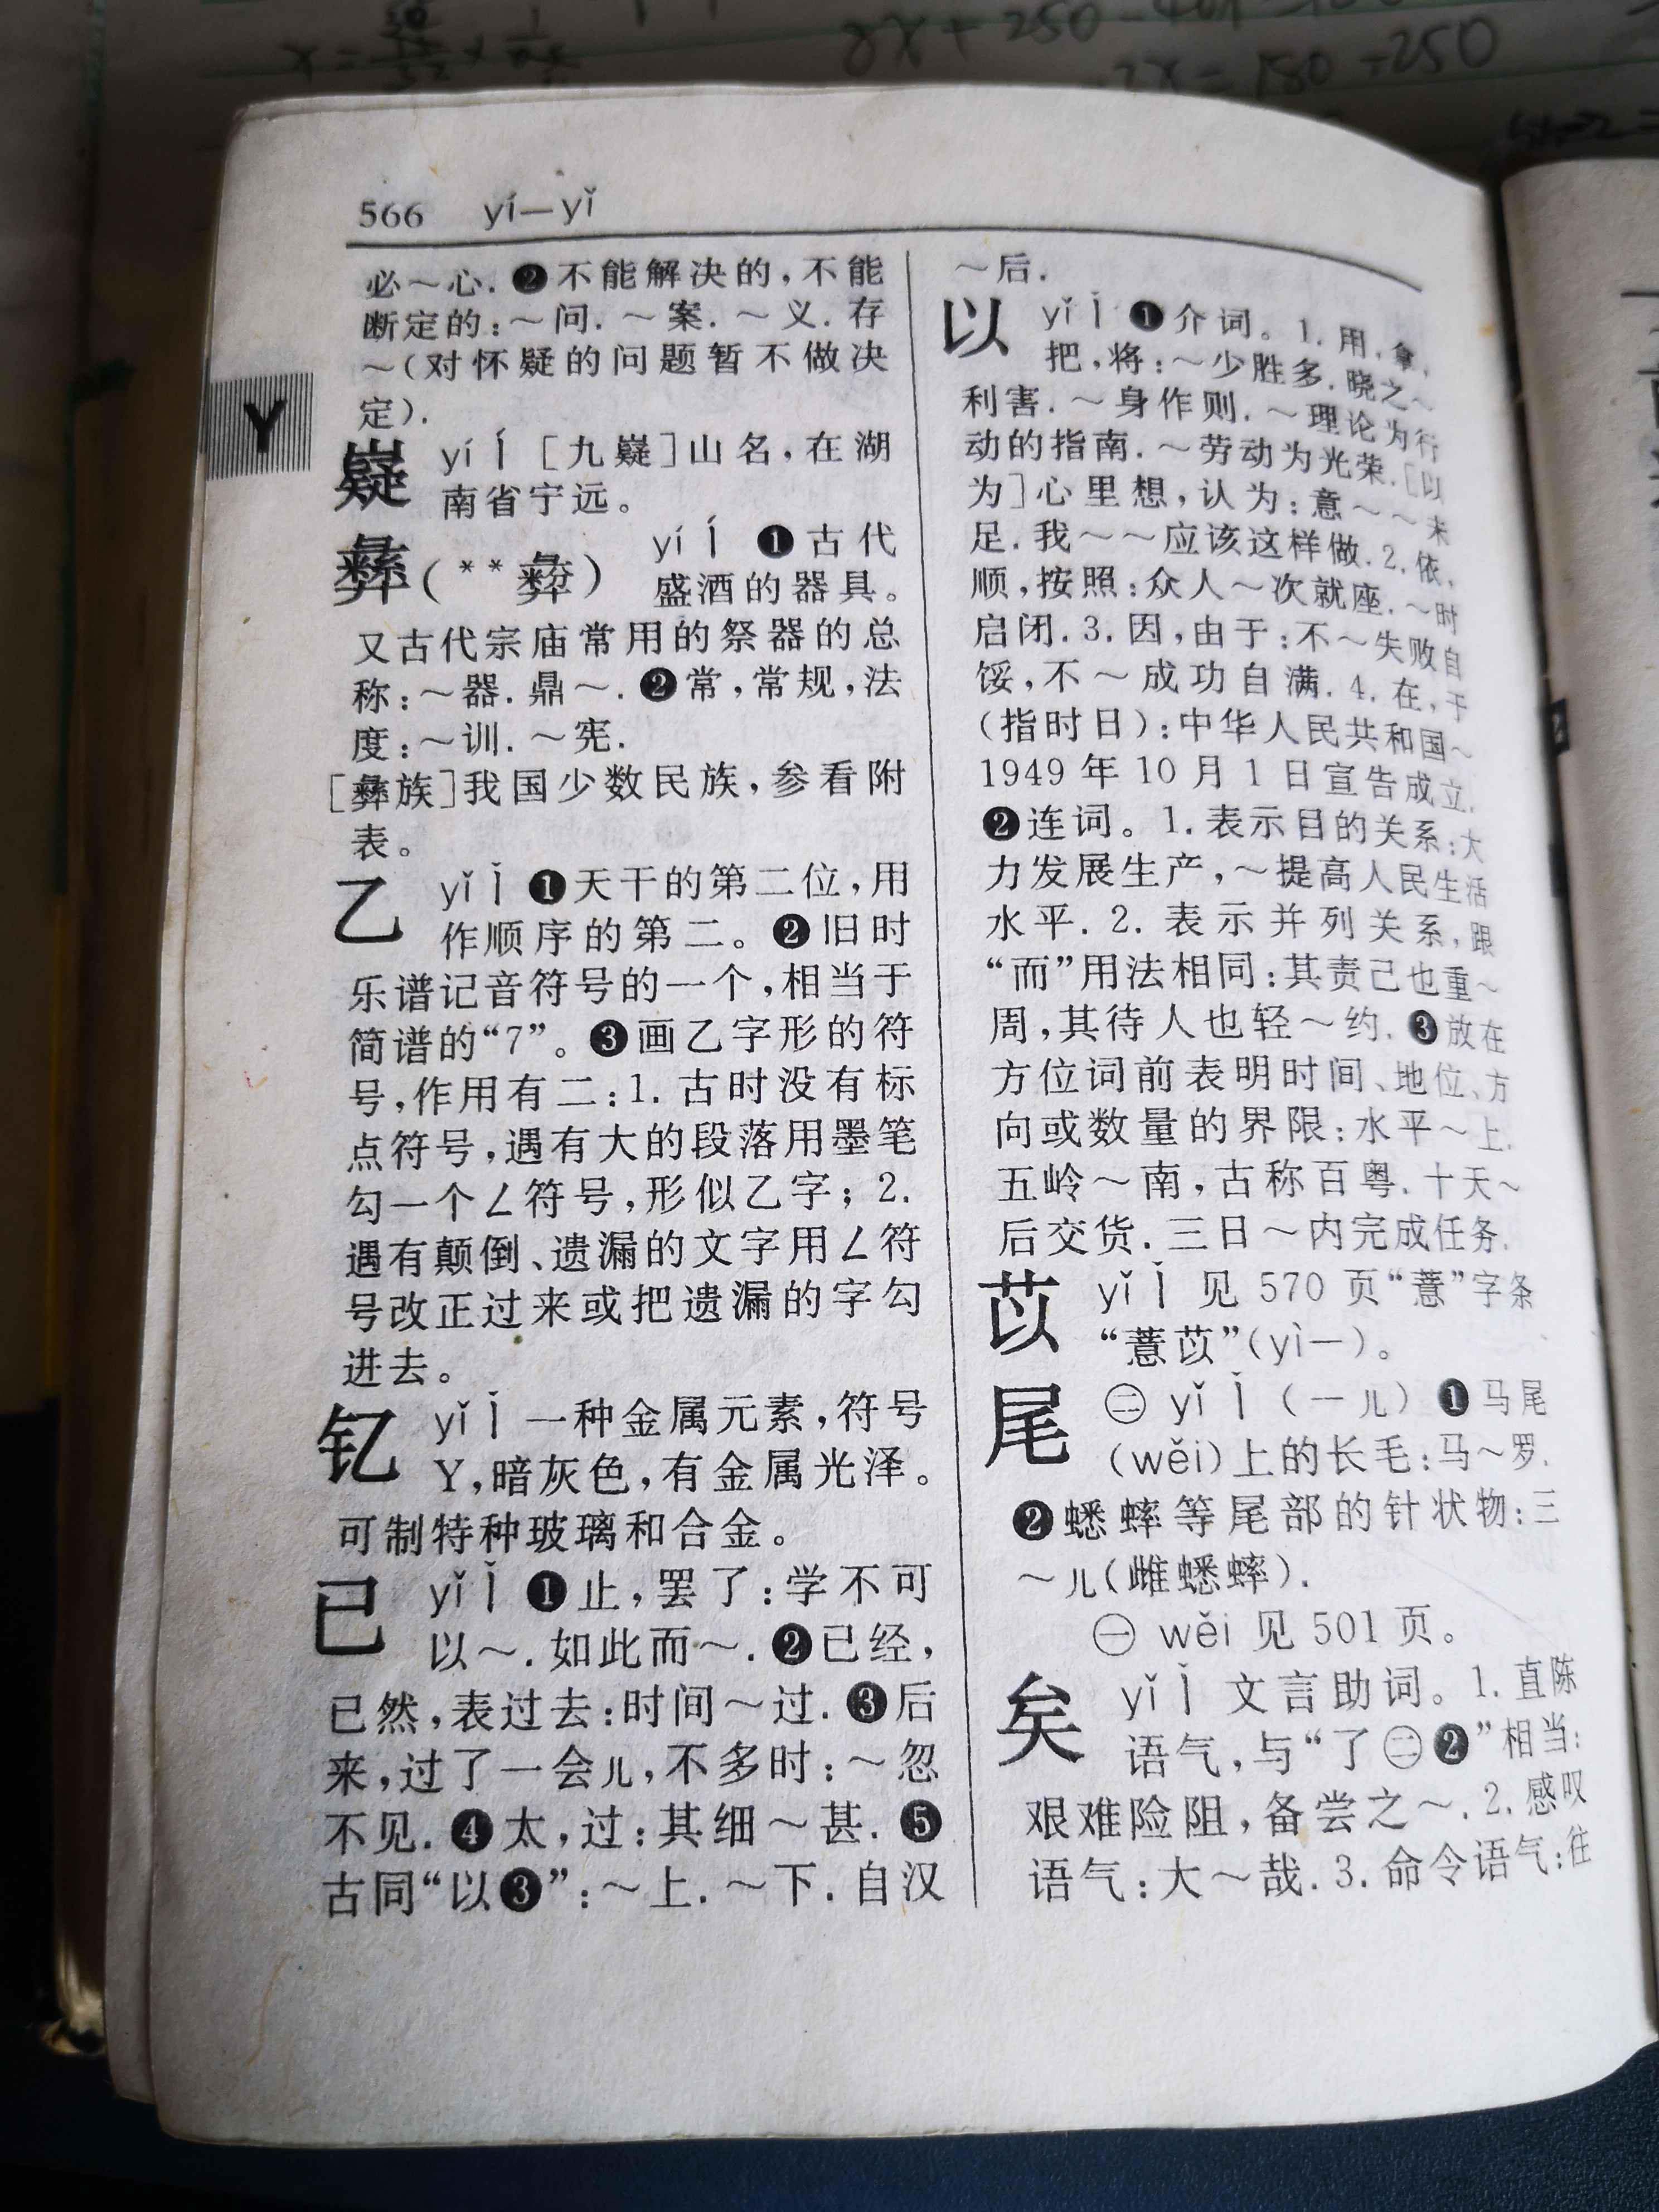 566 yí—yǐ
Y
必～心. ❷不能解决的,不能
断定的:～问. ～案. ～义. 存
～(对怀疑的问题暂不做决
定).
嶷 yí ㄧˊ [九嶷]山名,在湖
南省宁远。
彝(**彜) yí ㄧˊ ❶古代
盛酒的器具。
又古代宗庙常用的祭器的总
称:～器. 鼎～. ❷常,常规,法
度:～训. ～宪.
[彝族]我国少数民族,参看附
表。
乙 yǐ ㄧˇ ❶天干的第二位,用
作顺序的第二。❷旧时
乐谱记音符号的一个,相当于
简谱的“7”。❸画乙字形的符
号,作用有二:1. 古时没有标
点符号,遇有大的段落用墨笔
勾一个∠符号,形似乙字; 2.
遇有颠倒、遗漏的文字用∠符
号改正过来或把遗漏的字勾
进去。
钇 yǐ ㄧˇ 一种金属元素,符号
Y,暗灰色,有金属光泽。
可制特种玻璃和合金。
已 yǐ ㄧˇ ❶止,罢了:学不可
以～. 如此而～. ❷已经,
已然,表过去:时间～过. ❸后
来,过了一会儿,不多时:～忽
不见. ❹太,过:其细～甚. ❺
古同“以❸”:～上. ～下. 自汉
～后.
以 yǐ ㄧˇ ❶介词。1. 用,拿,
把,将:～少胜多. 晓之～
利害. ～身作则. ～理论为行
动的指南. ～劳动为光荣. [以
为]心里想,认为:意～～未
足. 我～～应该这样做. 2. 依,
顺,按照:众人～次就座. ～时
启闭. 3. 因,由于:不～失败自
馁,不～成功自满. 4. 在,于
(指时日):中华人民共和国～
1949 年 10 月 1 日宣告成立.
❷连词。1. 表示目的关系:大
力发展生产,～提高人民生活
水平. 2. 表示并列关系,跟
“而”用法相同:其责己也重～
周,其待人也轻～约. ❸放在
方位词前表明时间、地位、方
向或数量的界限:水平～上.
五岭～南,古称百粤. 十天～
后交货. 三日～内完成任务.
苡 yǐ ㄧˇ 见 570 页“薏”字条
“薏苡”(yì—)。
尾 ㊁ yǐ ㄧˇ (—儿) ❶马尾
(wěi)上的长毛:马～罗.
❷蟋蟀等尾部的针状物:三
～儿(雌蟋蟀).
㊀ wěi 见 501 页。
矣 yǐ ㄧˇ 文言助词。1. 直陈
语气,与“了㊁❷”相当:
艰难险阻,备尝之～. 2. 感叹
语气:大～哉. 3. 命令语气:往